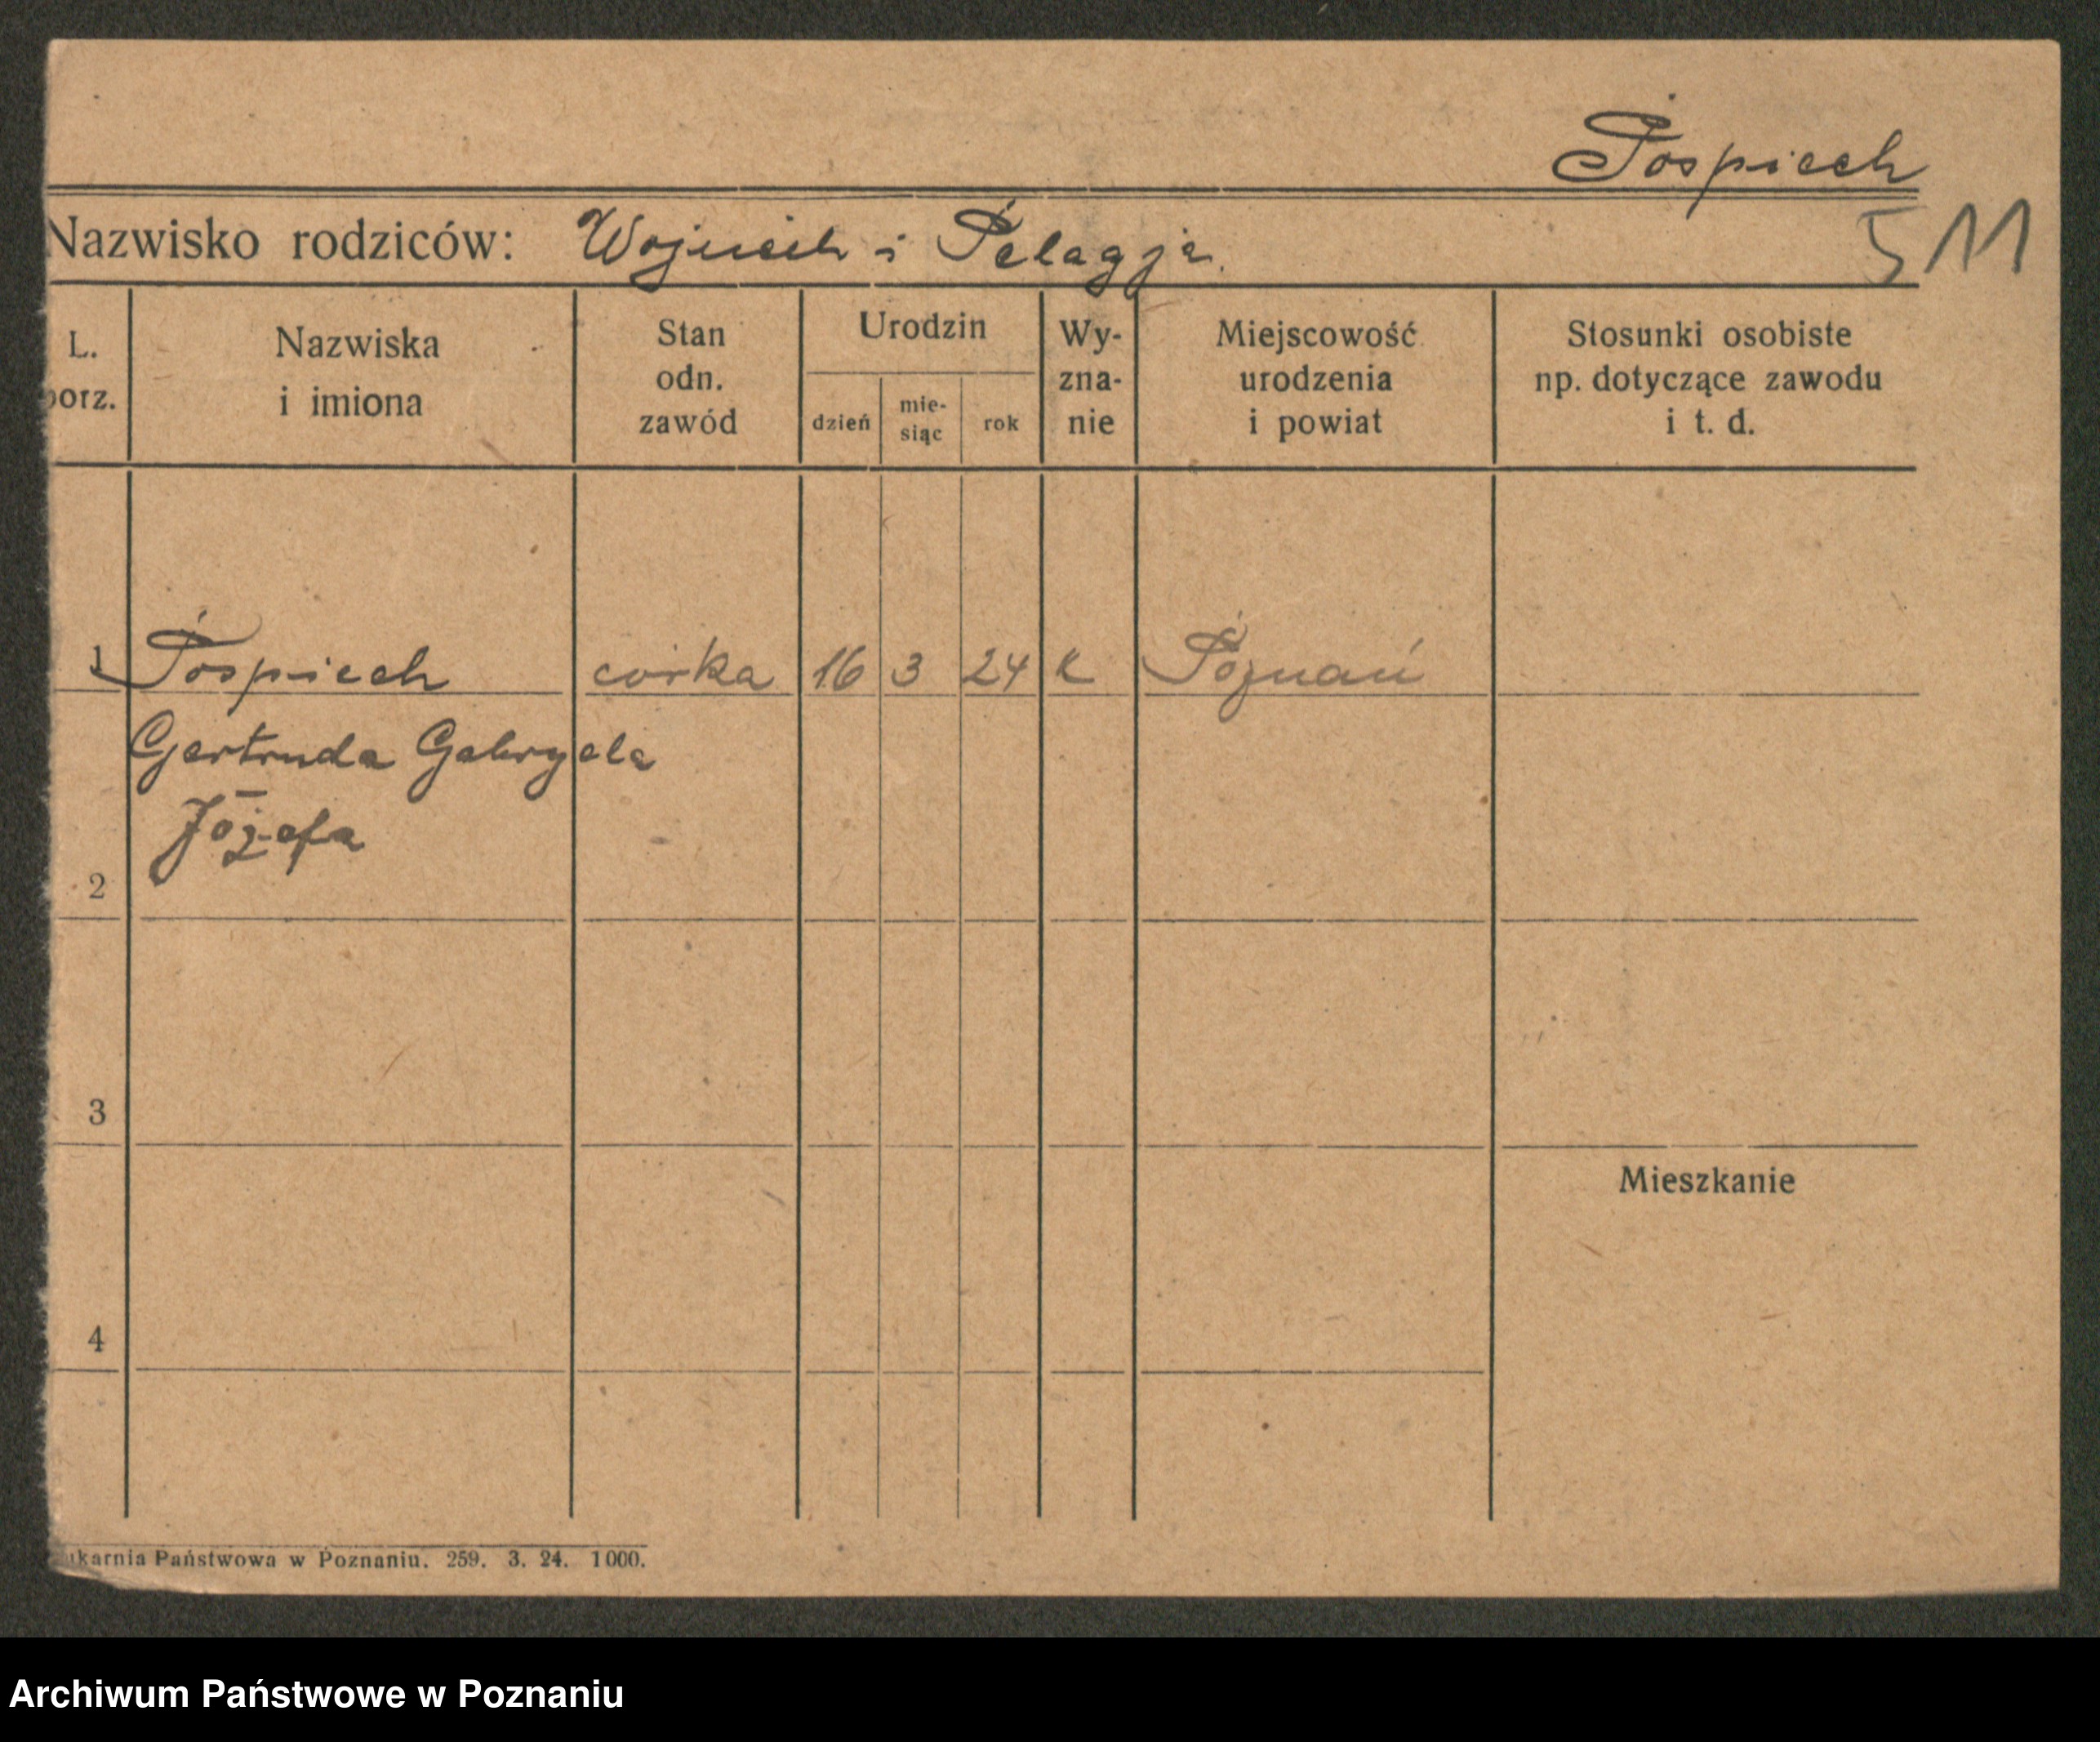 Pospiech
Nazwisko rodziców: Wojciech i Pelagja.
511
L. porz.
Nazwiska i imiona
Stan odn. zawód
Urodzin
dzień
mie-siąc
rok
Wy-zna-nie
Miejscowość urodzenia i powiat
Stosunki osobiste np. dotyczące zawodu i t. d.
1 Pospiech córka 16 3 24 k Poznań
Gertruda Gabryela
Józefa
2
3
Mieszkanie
4
ukarnia Państwowa w Poznaniu. 259. 3. 24. 1000.
Archiwum Państwowe w Poznaniu